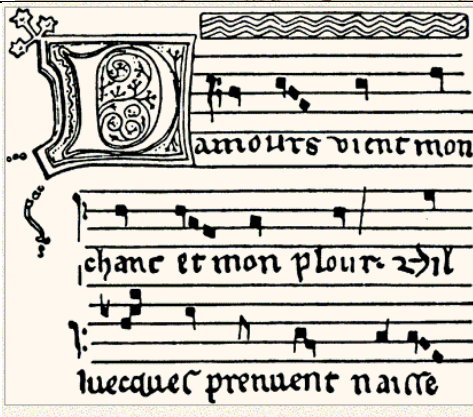 Damours vient mon
chant et mon plour ⁊ il
luecques prennent naisse